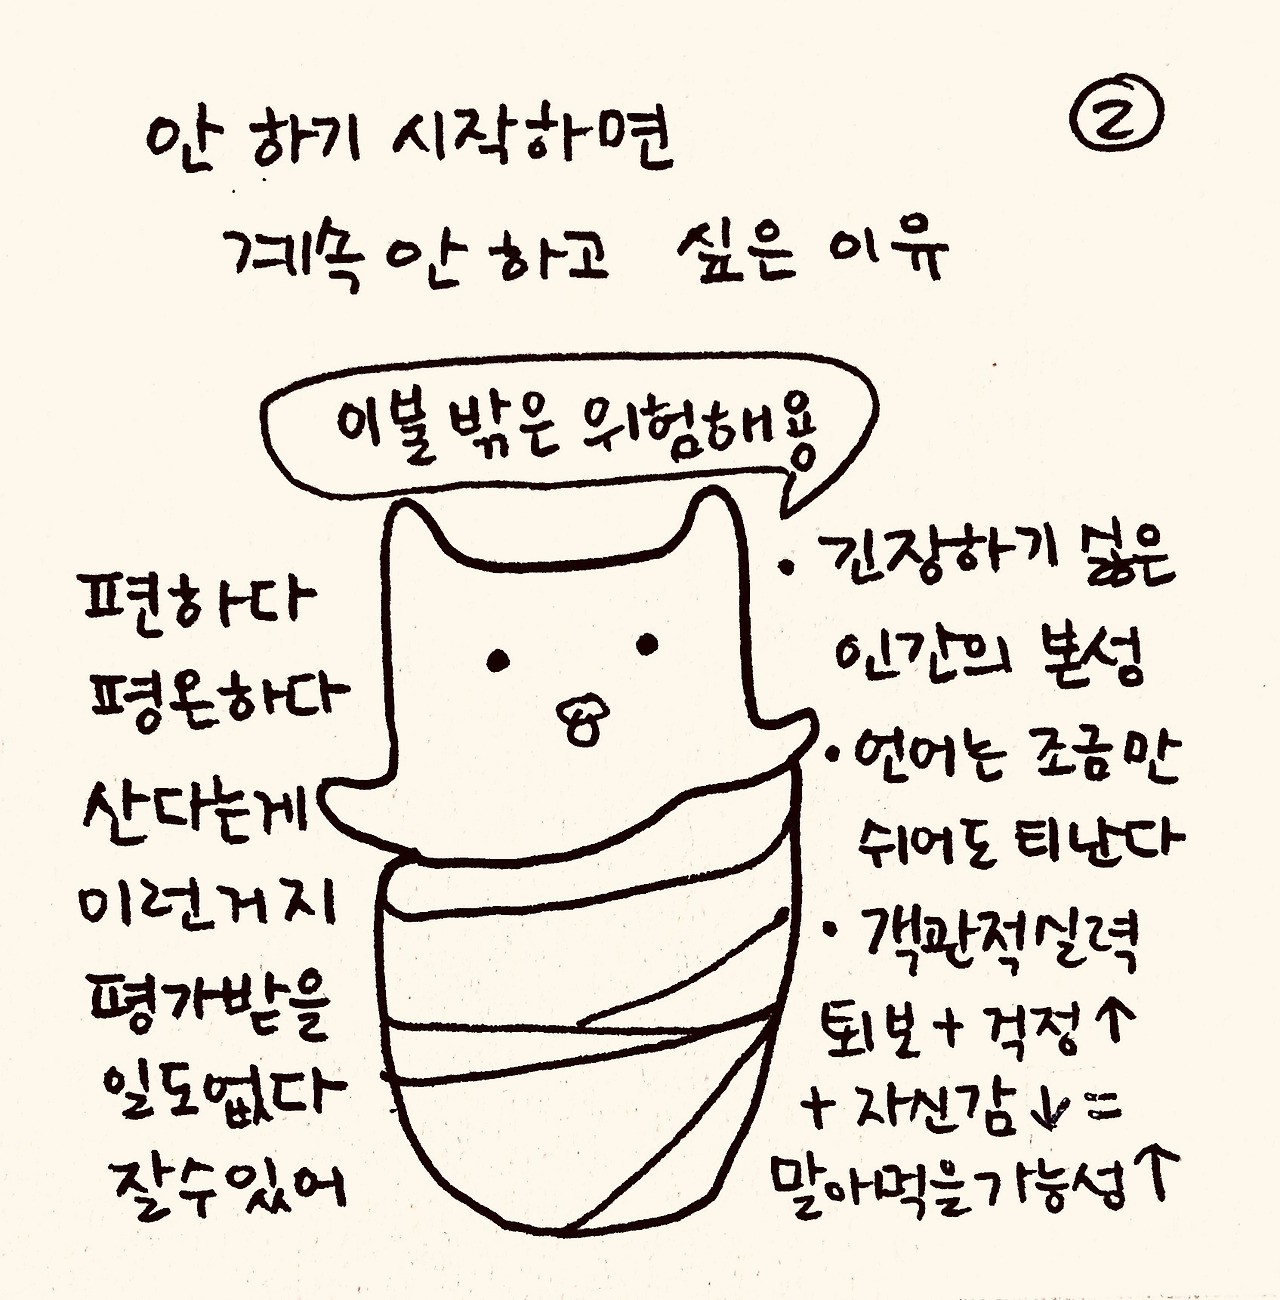 ②
안 하기 시작하면
계속 안 하고 싶은 이유
이불 밖은 위험해용
편하다
평온하다
산다는게
이런거지
평가받을
일도없다
잘수있어
• 긴장하기 싫은
인간의 본성
• 언어는 조금만
쉬어도 티난다
• 객관적실력
퇴보 + 걱정↑
+ 자신감↓ =
말아먹을가능성↑